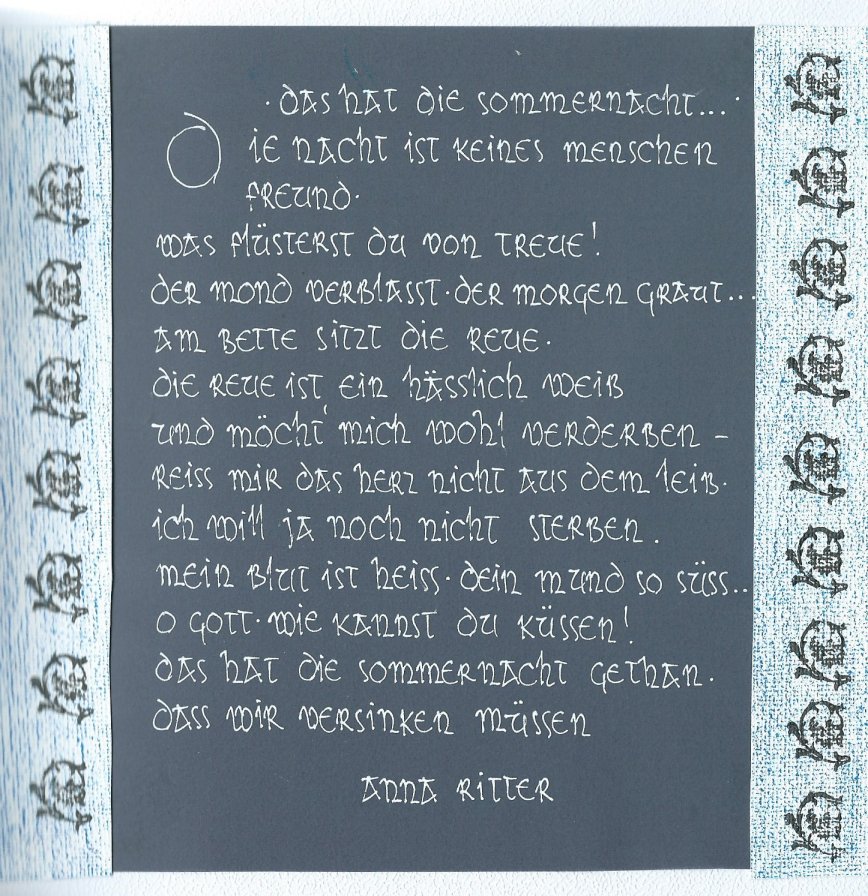 · das hat die sommernacht... ·
Die nacht ist keines menschen
freund·
was flüsterst du von treue!
der mond verblasst· der morgen graut...
am bette sitzt die reue·
die reue ist ein hässlich weib
und möcht' mich wohl verderben –
reiss mir das herz nicht aus dem leib·
ich will ja noch nicht sterben.
mein blut ist heiss· dein mund so süss..
o gott· wie kannst du küssen!
das hat die sommernacht gethan·
dass wir versinken müssen
anna ritter